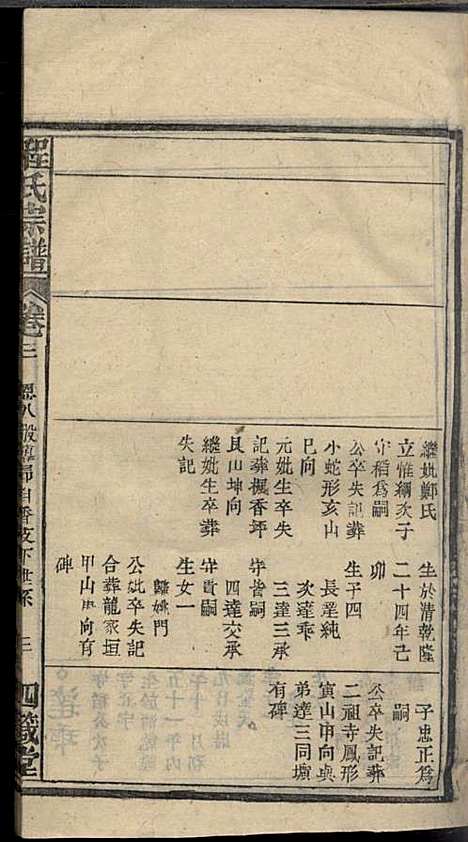 繼妣鄭氏
立惟綱次子
守稻爲嗣
公卒失記葬
小蛇形亥山
巳向
元妣生卒失
記葬楓香坪
艮山坤向
繼妣生卒葬
失記
生於清乾隆
二十四年己
卯
生子四
長達純
次達乖
三達三承
守訾嗣
四達交承
守貴嗣
生女一
歸姚門
公妣卒失記
合葬龍家垣
甲山庚向有
碑
子忠正爲
嗣
公卒失記葬
二祖寺鳳形
寅山申向與
弟達三同墳
有碑
程氏宗譜
卷三
三
四箴堂